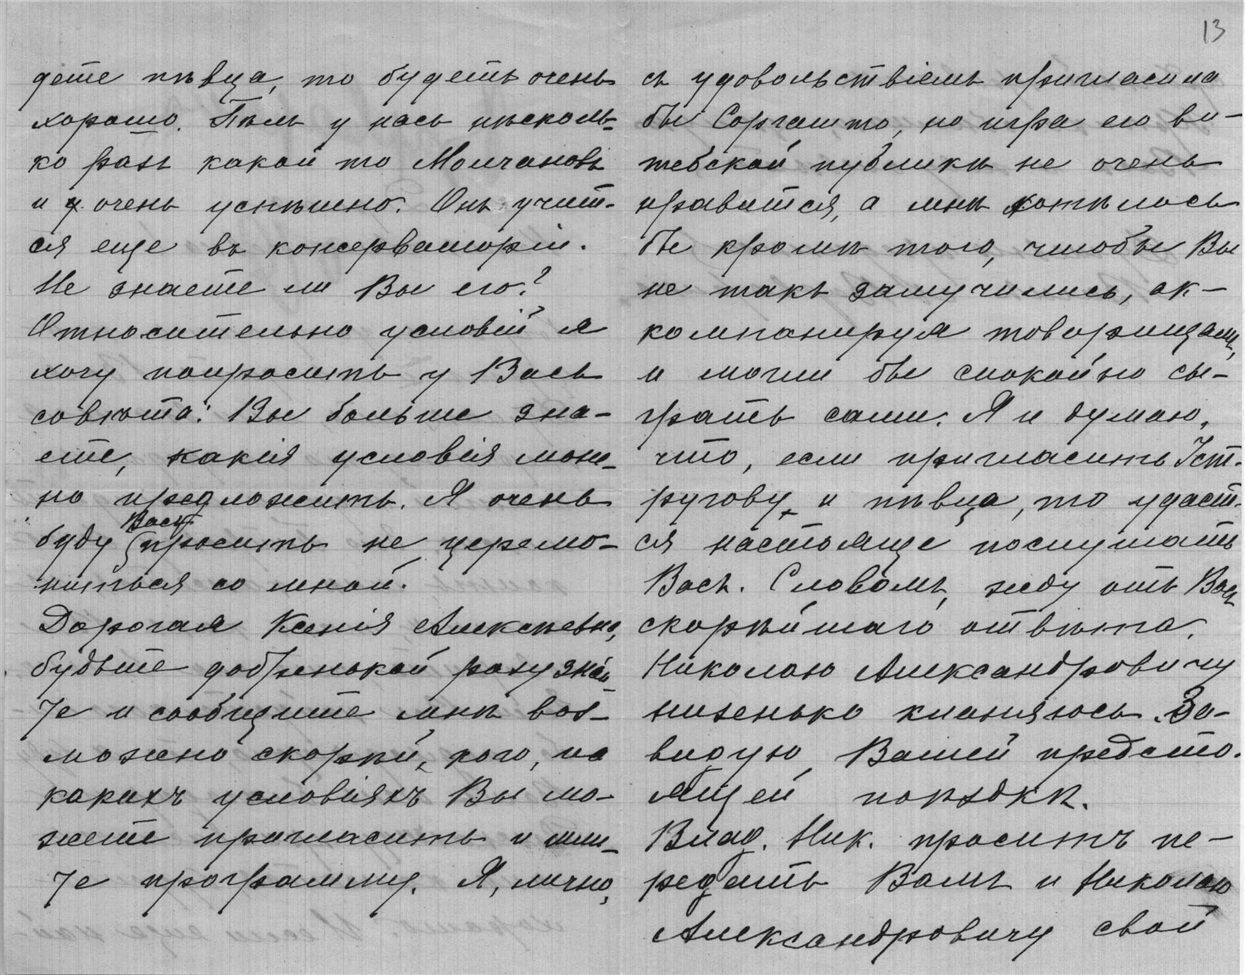 дете пѣвца, то будетъ очень
хорошо. Пѣлъ у насъ нѣсколь-
ко разъ какой то Молчановъ
и очень успѣшно. Онъ учит-
ся еще въ консерваторіи.
Не знаете ли Вы его?
Относительно условій я
хочу попросить у Васъ
совѣта: Вы больше зна-
ете, какія условія мож-
но предложить. Я очень
буду Васъ просить не церемо-
ниться со мной.
Дорогая Ксенія Алексѣевна,
будьте добренькой разузнай-
те и сообщите мнѣ воз-
можно скорѣй, кого, на
какихъ условіяхъ Вы мо-
жете пригласить и шли-
те программу. Я, лично,
13
съ удовольствіемъ пригласила
бы, но игра его ви-
тебской публикѣ не очень
нравится, а мнѣ хотѣлось
бы кромѣ того, чтобы Вы
не такъ замучились, ак-
компанируя товарищамъ,
и могли бы спокойно сы-
грать сами. Я и думаю,
что, если пригласить Іст-
ругову и пѣвца, то удаст-
ся настояще послушать
Васъ. Словомъ, жду отъ Васъ
скорѣйшаго отвѣта.
Николаю Александровичу
низенько кланяюсь. За-
видую Вашей предсто-
ящей поѣздкѣ.
Влад. Ник. проситъ пе-
редать Вамъ и Николаю
Александровичу свой